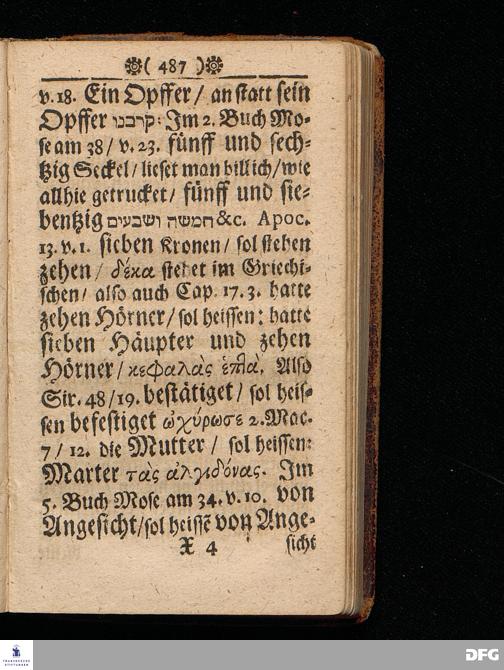 ( 487 )
v. 18. Ein Opffer / an statt sein
Opffer קרבנו: Im 2. Buch Mo-
se am 38 / v. 23. fünff und sech-
tzig Seckel / lieset man billich / wie
allhie getrucket / fünff und sie-
bentzig חמשה ושבעים &c. Apoc.
13. v. 1. sieben Kronen / sol stehen
zehen / δέκα stehet im Griechi-
schen / also auch Cap. 17. 3. hatte
zehen Hörner / sol heissen: hatte
sieben Häupter und zehen
Hörner / κεφαλὰς ἑπτὰ. Also
Sir. 48 / 19. bestätiget / sol heis-
sen befestiget ὠχύρωσε 2. Mac.
7 / 12. die Mutter / sol heissen:
Marter τὰς ἀλγηδόνας. Im
5. Buch Mose am 34. v. 10. von
Angesicht / sol heissē von Ange-
X 4 sicht
FRANCKESCHE
STIFTUNGEN
DFG